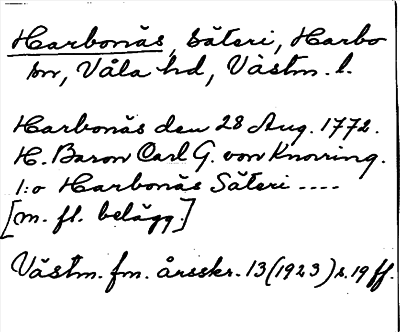 Harbonäs, säteri, Harbo
sn, Våla hd, Västm. l.
Harbonäs den 28 Aug. 1772.
H. Baron Carl G. von Knorring.
1:o Harbonäs Säteri ----
[m. fl. belägg]
Västm. fm. årsskr. 13 (1923) s. 19 ff.